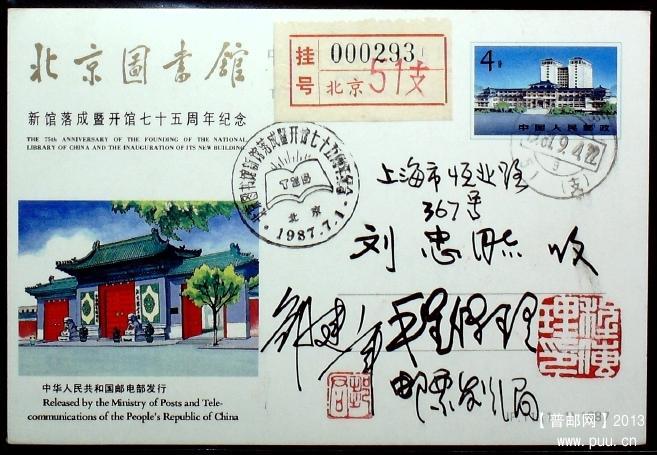 北京图书馆
新馆落成暨开馆七十五周年纪念
THE 75th ANNIVERSARY OF THE FOUNDING OF THE NATIONAL
LIBRARY OF CHINA AND THE INAUGURATION OF ITS NEW BUILDING
挂号
000293
北京 51支
4分
中国人民邮政
北京图书馆新馆落成暨开馆七十五周年纪念
北京
1987.7.1
上海市恒业路
367号
刘忠 收
邮票发行局
中华人民共和国邮电部发行
Released by the Ministry of Posts and Tele-
communications of the People's Republic of China
【普邮网】2013
www.puu.cn